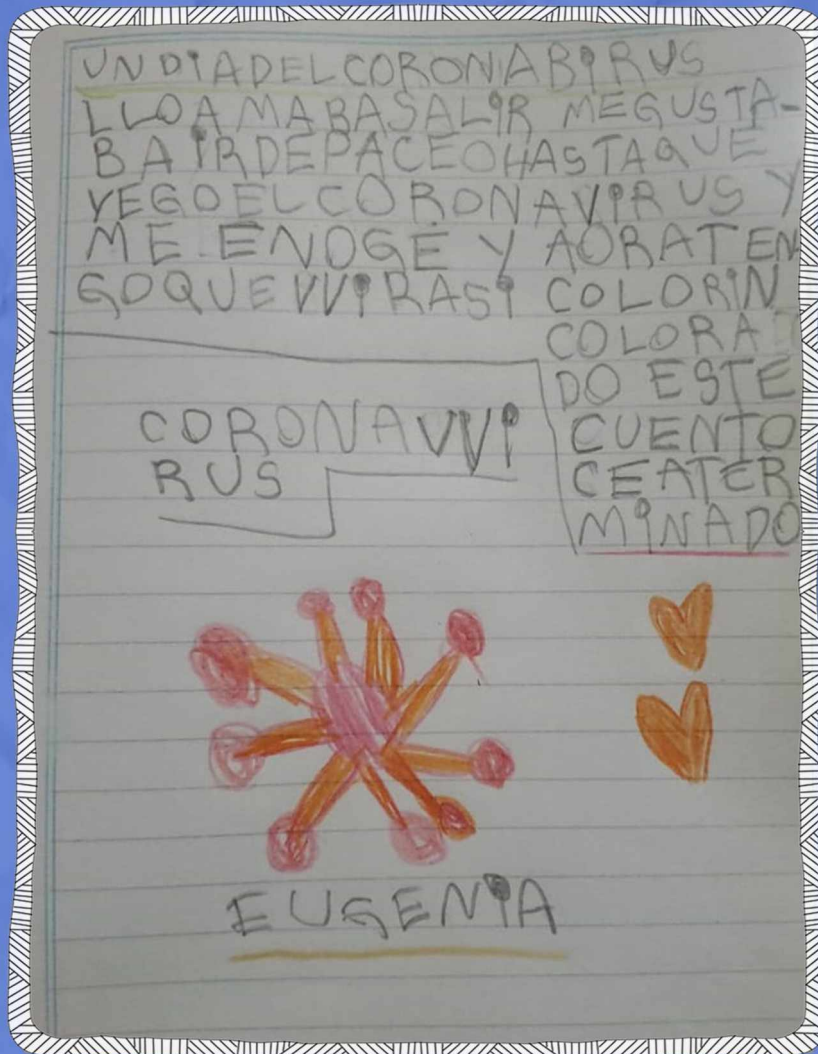 UN DIADELCORONABIRUS
LLOAMABASALIR MEGUSTA-
BAIRDEPACEOHASTAQUE
YEGOELCORONAVIRUS Y
ME ENOGE Y AORATEN
GOQUEVVIRASI COLORIN
COLORA
DO ESTE
CUENTO
CEATER
MINADO
CORONAVVI
RUS
EUGENIA